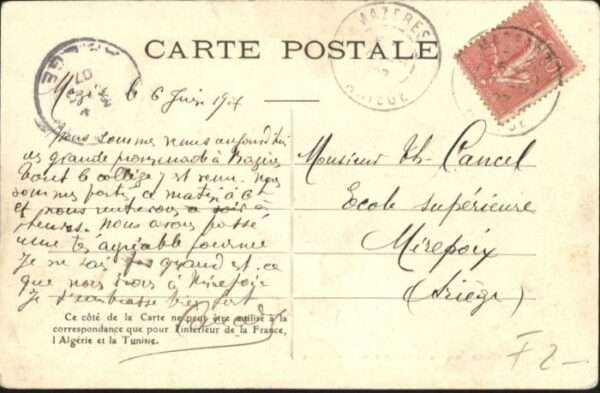 CARTE POSTALE
MAZERES
ARIEGE
le 6 Juin 1907
Nous sommes venus aujourd'hui
en grande promenade à Mazères
tout le collège y est venu. Nous
sommes partis ce matin à 6h
et nous rentrerons ce soir à
heures. Nous avons passé
une très agréable journée
Je ne sais quand est-ce
que nous irons à Mirepoix
Je t'embrasse bien fort
Monsieur Ch. Cancel
Ecole supérieure
Mirepoix
(Ariège)
Ce côté de la Carte ne peut être utilisé à la
correspondance que pour l'intérieur de la France,
l'Algérie et la Tunisie.
F 2 —